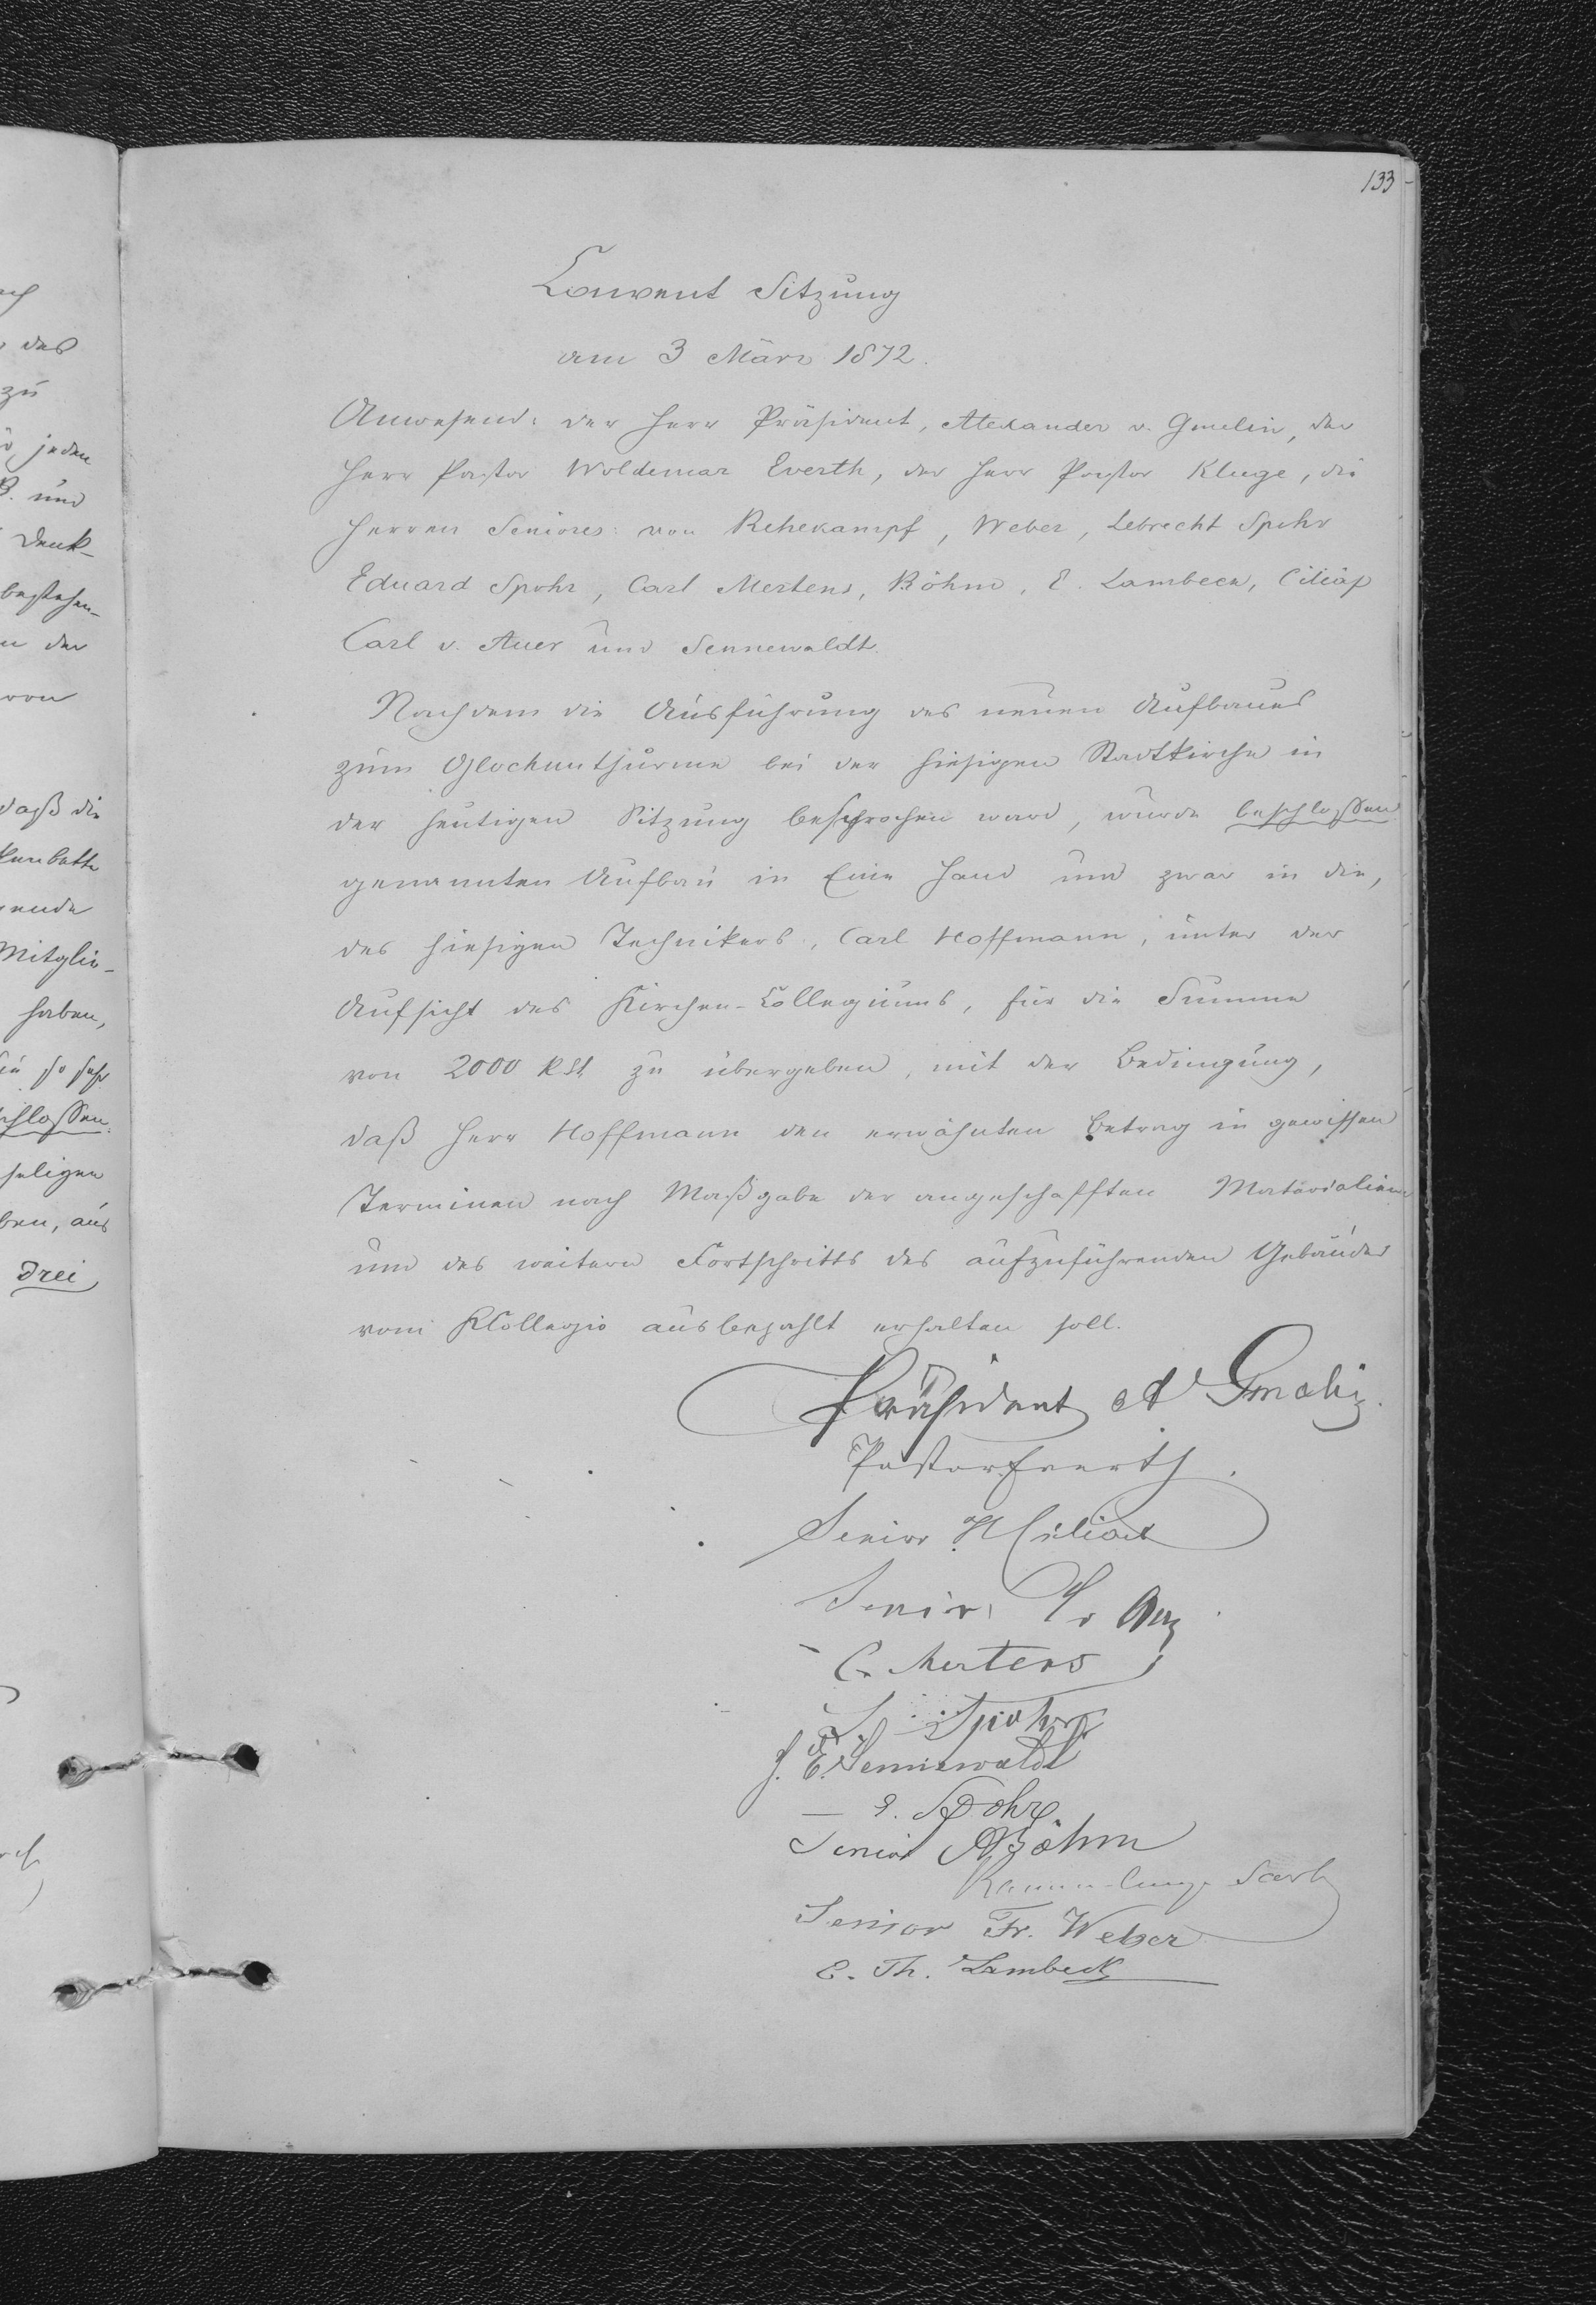 133
Convent Sitzung
am 3 März 1872.
Anwesend: der Herr Präsident, Alexander v. Gmelin, der
Herr Pastor Woldemar Everth, der Herr Pastor Kluge, die
Herren Seniores: von Rehekampf, Weber, Lebrecht Spohr
Eduard Spohr, Carl Mertens, Böhm, E. Lambeck, Ciliax
Carl v. Auer und Sennewaldt.
Nachdem die Ausführung des neuen Aufbaues
zum Glockenthurme bei der hiesigen Stadtkirche in
der heutigen Sitzung besprochen ward, wurde beschlossen
genannten Aufbau in Eine Hand und zwar in die,
des hiesigen Technikers, Carl Hoffmann, unter der
Aufsicht des Kirchen-Collegiums, für die Summe
von 2000 R St. zu übergeben, mit der Bedingung,
daß Herr Hoffmann den erwähnten Betrag in gewissen
Terminen nach Maßgabe der angeschafften Materialien
und des weitern Fortschritts des aufzuführenden Gebäudes
vom KCollegio ausbezahlt erhalten soll.
Präsident A Gmelin.
Pastor Everth.
Senior Ciliax
Senior v Auer
C. Mertens
L. Spohr
J. E. Sennewaldt
E. Spohr
Senior Böhm
Senior Fr. Weber
E. Th. Lambeck
des
zu
jeden
und
Denk-
bestehen-
der
von
daß die
Mitglie-
haben,
so sehr
schlossen.
seligen
ben, aus
drei